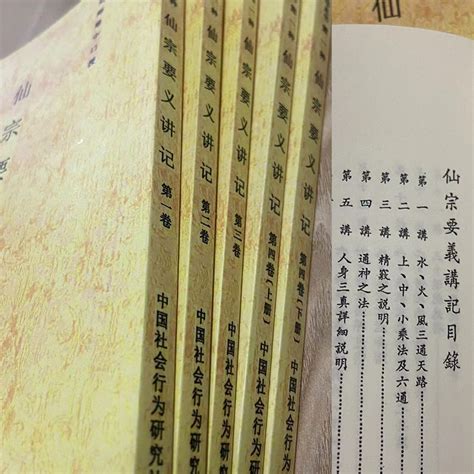 仙宗要
仙宗要义讲记 第一卷 中国社会行为研究
仙宗要义讲记 第二卷 中国社会行为研究
仙宗要义讲记 第三卷 中国社会行为研究
仙宗要义讲记 第四卷(上册) 中国社会行为研究
仙宗要义讲记 第四卷(下册) 中国社会行为研究
仙
仙宗要義講記目錄
第一講 水、火、風三通天路⋯⋯
第二講 上、中、小乘法及六通⋯⋯
第三講 精之説明⋯⋯
第四講 通神之法⋯⋯
第五講 人身三真詳細説明⋯⋯